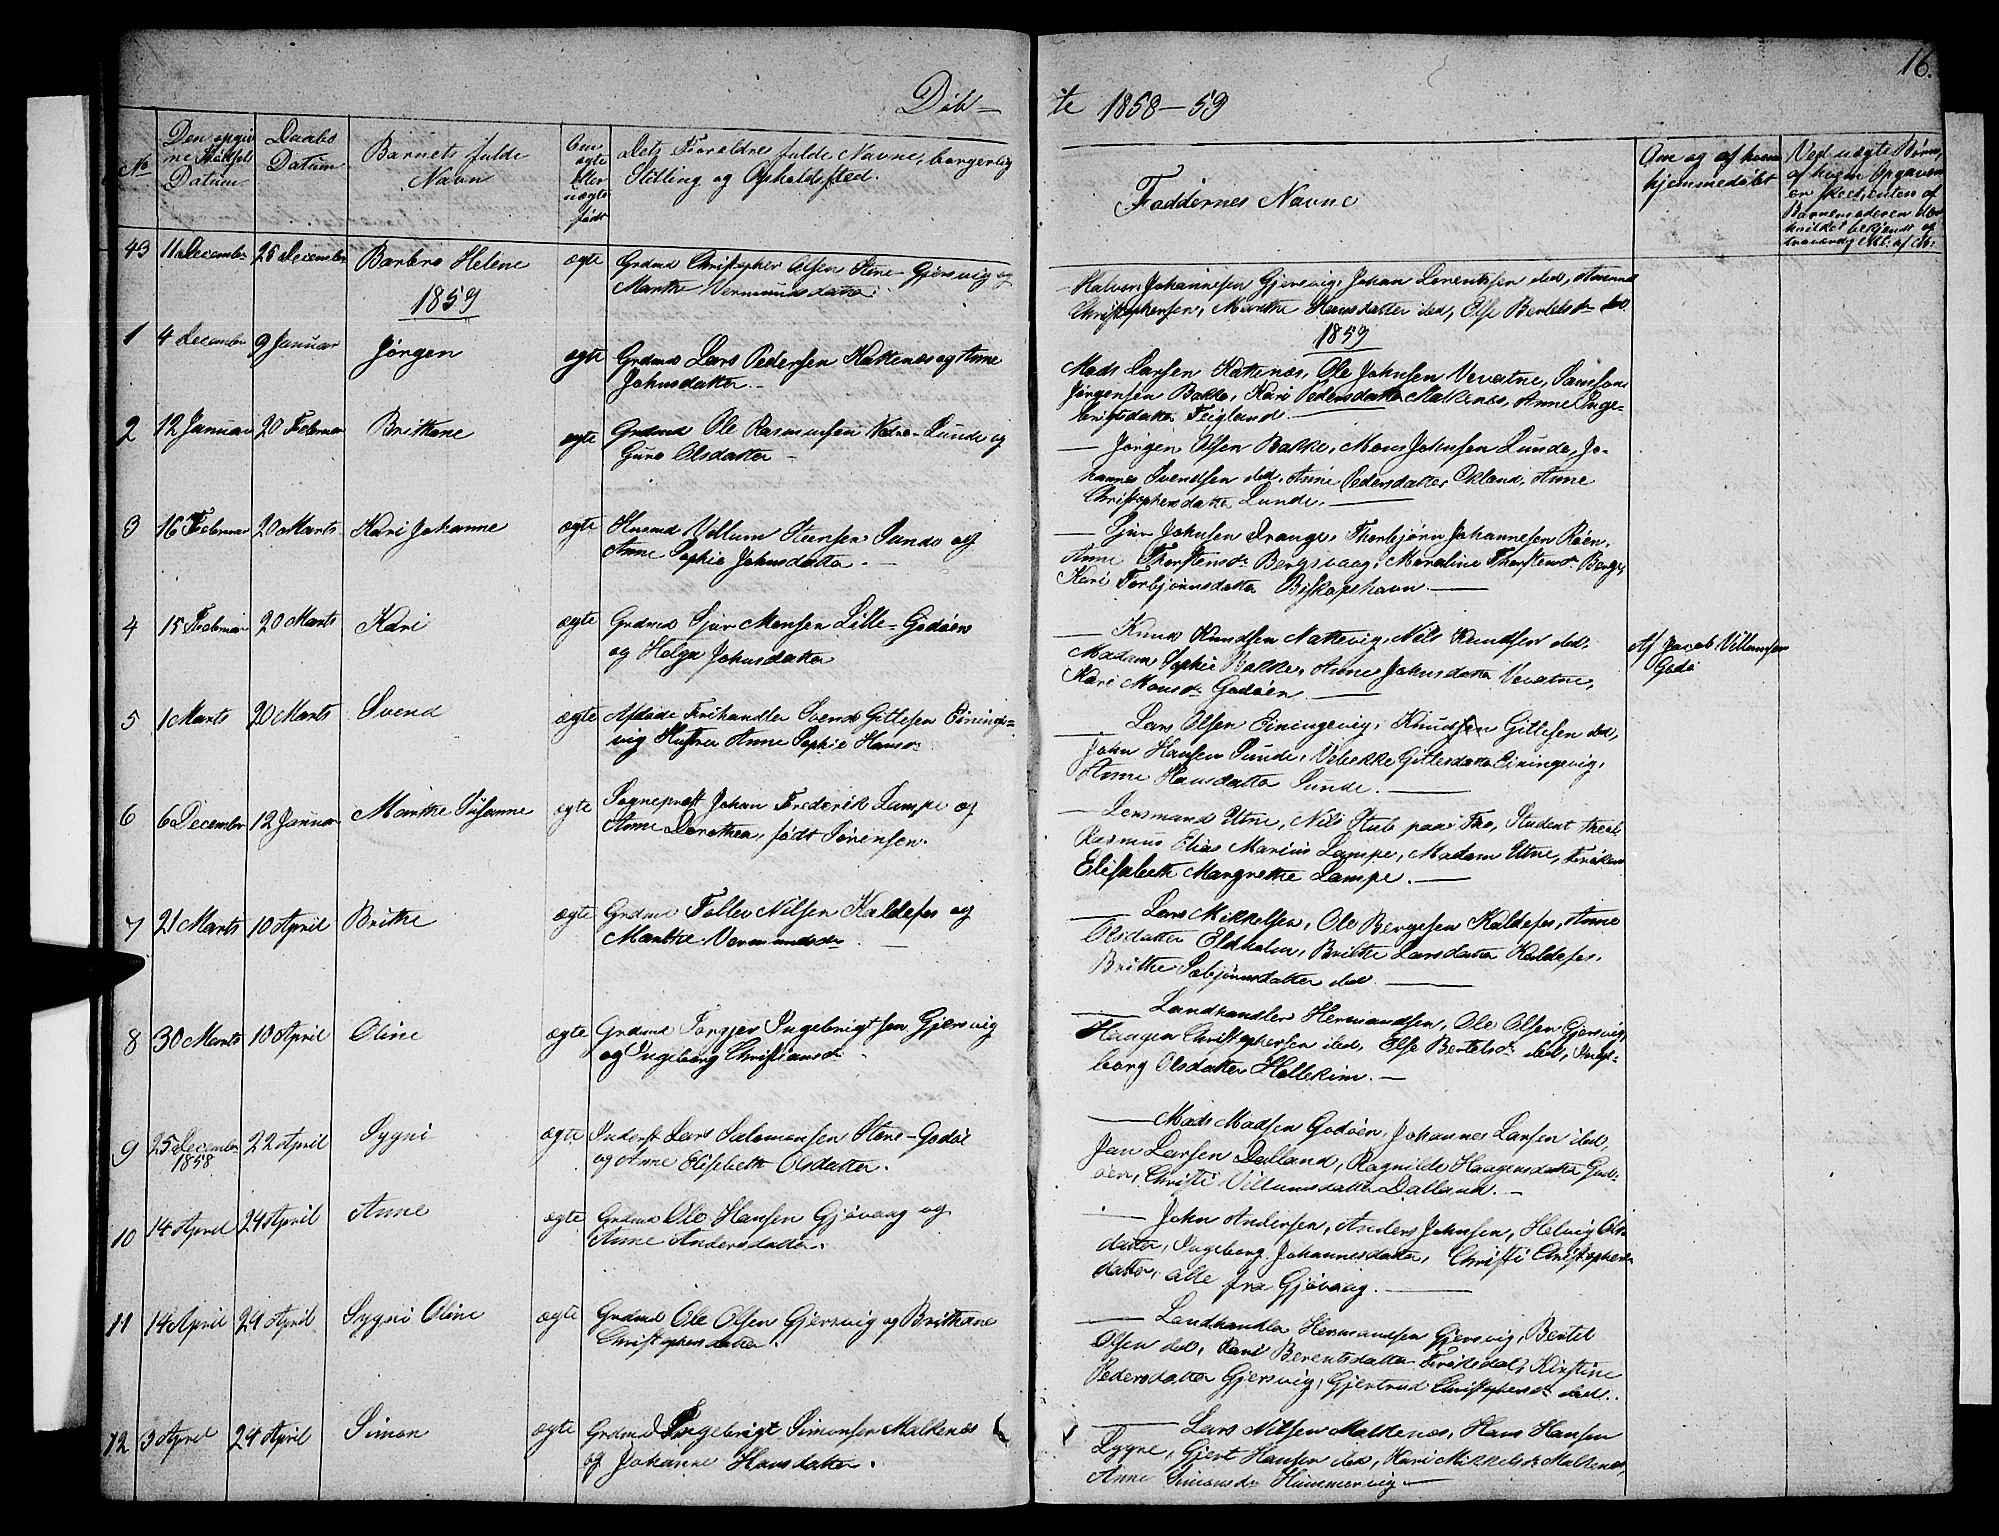 16.
Døb-
te 1858-59
No
Den opgiv
ne Fødsels
Datum
Daabs
Datum
Barnets fulde
Navn
Om
ægte
eller
uægte
født
Dets Forældres fulde Navne, borgerlig
Stilling og Opholdssted.
Faddernes Navne
Om og af hvem
hjemmedøbt
Ved uægte Børn,
af hvem Opgaven
er skeet, enten af
43 11 December 26 December Barbro Helene ægte Grdmd Christopher Olsen Stene-Gjersvig og
Marthe Vermundsdatter.
Halvor Johannesen Gjersvig, Johan Lorentsen ibd, Amund
Christophersen, Marthe Hansdatter ibd, Else Bertelsdr ibd.
1859
1859
1 4 December 9 Januar Jørgen ægte Grdmd Lars Pedersen Kattenæs og Anne
Johnsdatter.-
Mads Larsen Kattenæs, Ole Johnsen Vevatne, Samson
Jørgensen Bakke, Kari Pedersdatter Malkenæs, Anne Inge-
brigtsdatter Teigland.
2 12 Januar 20 Februar Brithene ægte Grdmd Ole Rasmussen Nedre-Lunde og
Guro Olsdatter -
Jørgen Olsen Bakke, Mons Johnsen Lunde, Jo-
hannes Svendsen ibd, Anne Pedersdatter Økland, Anne
Christophersdatter Lunde.
3 16 Februar 20 Marts Kari Johanne ægte Husmd Villum Steensen Sunde og
Anne Sophie Johnsdatter.-
Sjur Johnsen Drange, Thorbjørn Johannesen Røen,
Anne Thorstensdr Bergsvaag, Maraline Thorstensdr Borge,
Kari Torbjørnsdatter Biskopshavn.
4 15 Februar 20 Marts Kari ægte Grdmd Sjur Monsen Lille-Godøen
og Helga Johnsdatter
Knud Knudsen Nattevig, Nils Knudsen ibd.
Madam Sophie Bakke, Anne Johnsdatter Vevatne,
Kari Monsdr Godøen.
Af Jacob Villumsen
Godø
5 1 Marts 20 Marts Svend ægte Afdøde Frihandler Svend Gitlesen Eininge-
vig Hustru Anne Sophie Hansdr
Lars Olsen Einingevig, Knudsen Gitlesen ibd,
John Hansen Sunde, Vebekke Gitlesdatter Einingevig,
Anne Hansdatter Sunde.
6 6 December 12 Januar Marthe Susanne ægte Sognepræst Johan Frederik Lampe og
Anne Dorothea, født Sørensen.
Lensmand Utne, Nils Stub paa Tho, Student theol.
Rasmus Elias Marius Lampe, Madam Utne, Frøken
Elisabeth Margrethe Lampe.
7 21 Marts 10 April Brithe ægte Grdmd Tollev Nilsen Kaldefos og
Marthe Vermundsdr
Lars Mikkelsen, Ole Bergesen Kaldefos, Anne
Olsdatter Eldholm, Brithe Larsdatter Kaldefos,
Brithe Sebjørnsdatter ibd.
8 30 Marts 10 April Oline ægte Grdmd Torgjer Ingebrigtsen Gjersvig
og Ingeborg Christiansdr
Landhandler Hermandsen, Ole Olsen Gjersvig,
Haagen Christophersen ibd, Else Bertelsdr ibd, Inge-
borg Olsdatter Hellekim.-
9 25 December
1858 22 April Sygni ægte Inderst Lars Salomonsen Store-Godøe
og Anne Elisebeth Olsdatter.
Mads Madsen Godøen, Johannes Larsen ibd,
Jan Larsen Dalland, Ragnilde Haagensdatter God-
øen, Christi Villumsdatter Dalland.-
10 14 April 24 April Anne ægte Grdmd Ole Hansen Gjøvaag og
Anne Andersdatter.
John Andersen, Anders Johnsen, Helvig Ols-
datter, Ingeborg Johannesdatter, Christi Christophers-
datter, alle fra Gjøvaag.
11 14 April 24 April Sygni Oline ægte Grdmd Ole Olsen Gjersvig og Brithane
Christophersdatter.
Landhandler Hermandsen Gjersvig, Bertel
Olsen ibd, Kari Berentsdatter Frøkedal, Kirstine
Pedersdatter Gjersvig, Gjertrud Christophersdr ibd.
12 3 April 24 April Simon ægte Grdmd Ingebrigt Simonsen Malkenæs
og Johanne Hansdatter.
Lars Nilsen Malkenæs, Hans Hansen
Lygre, Gjert Hansen ibd, Kari Mikkelsdr Malkenæs,
Anne Simonsdr Hummervig-